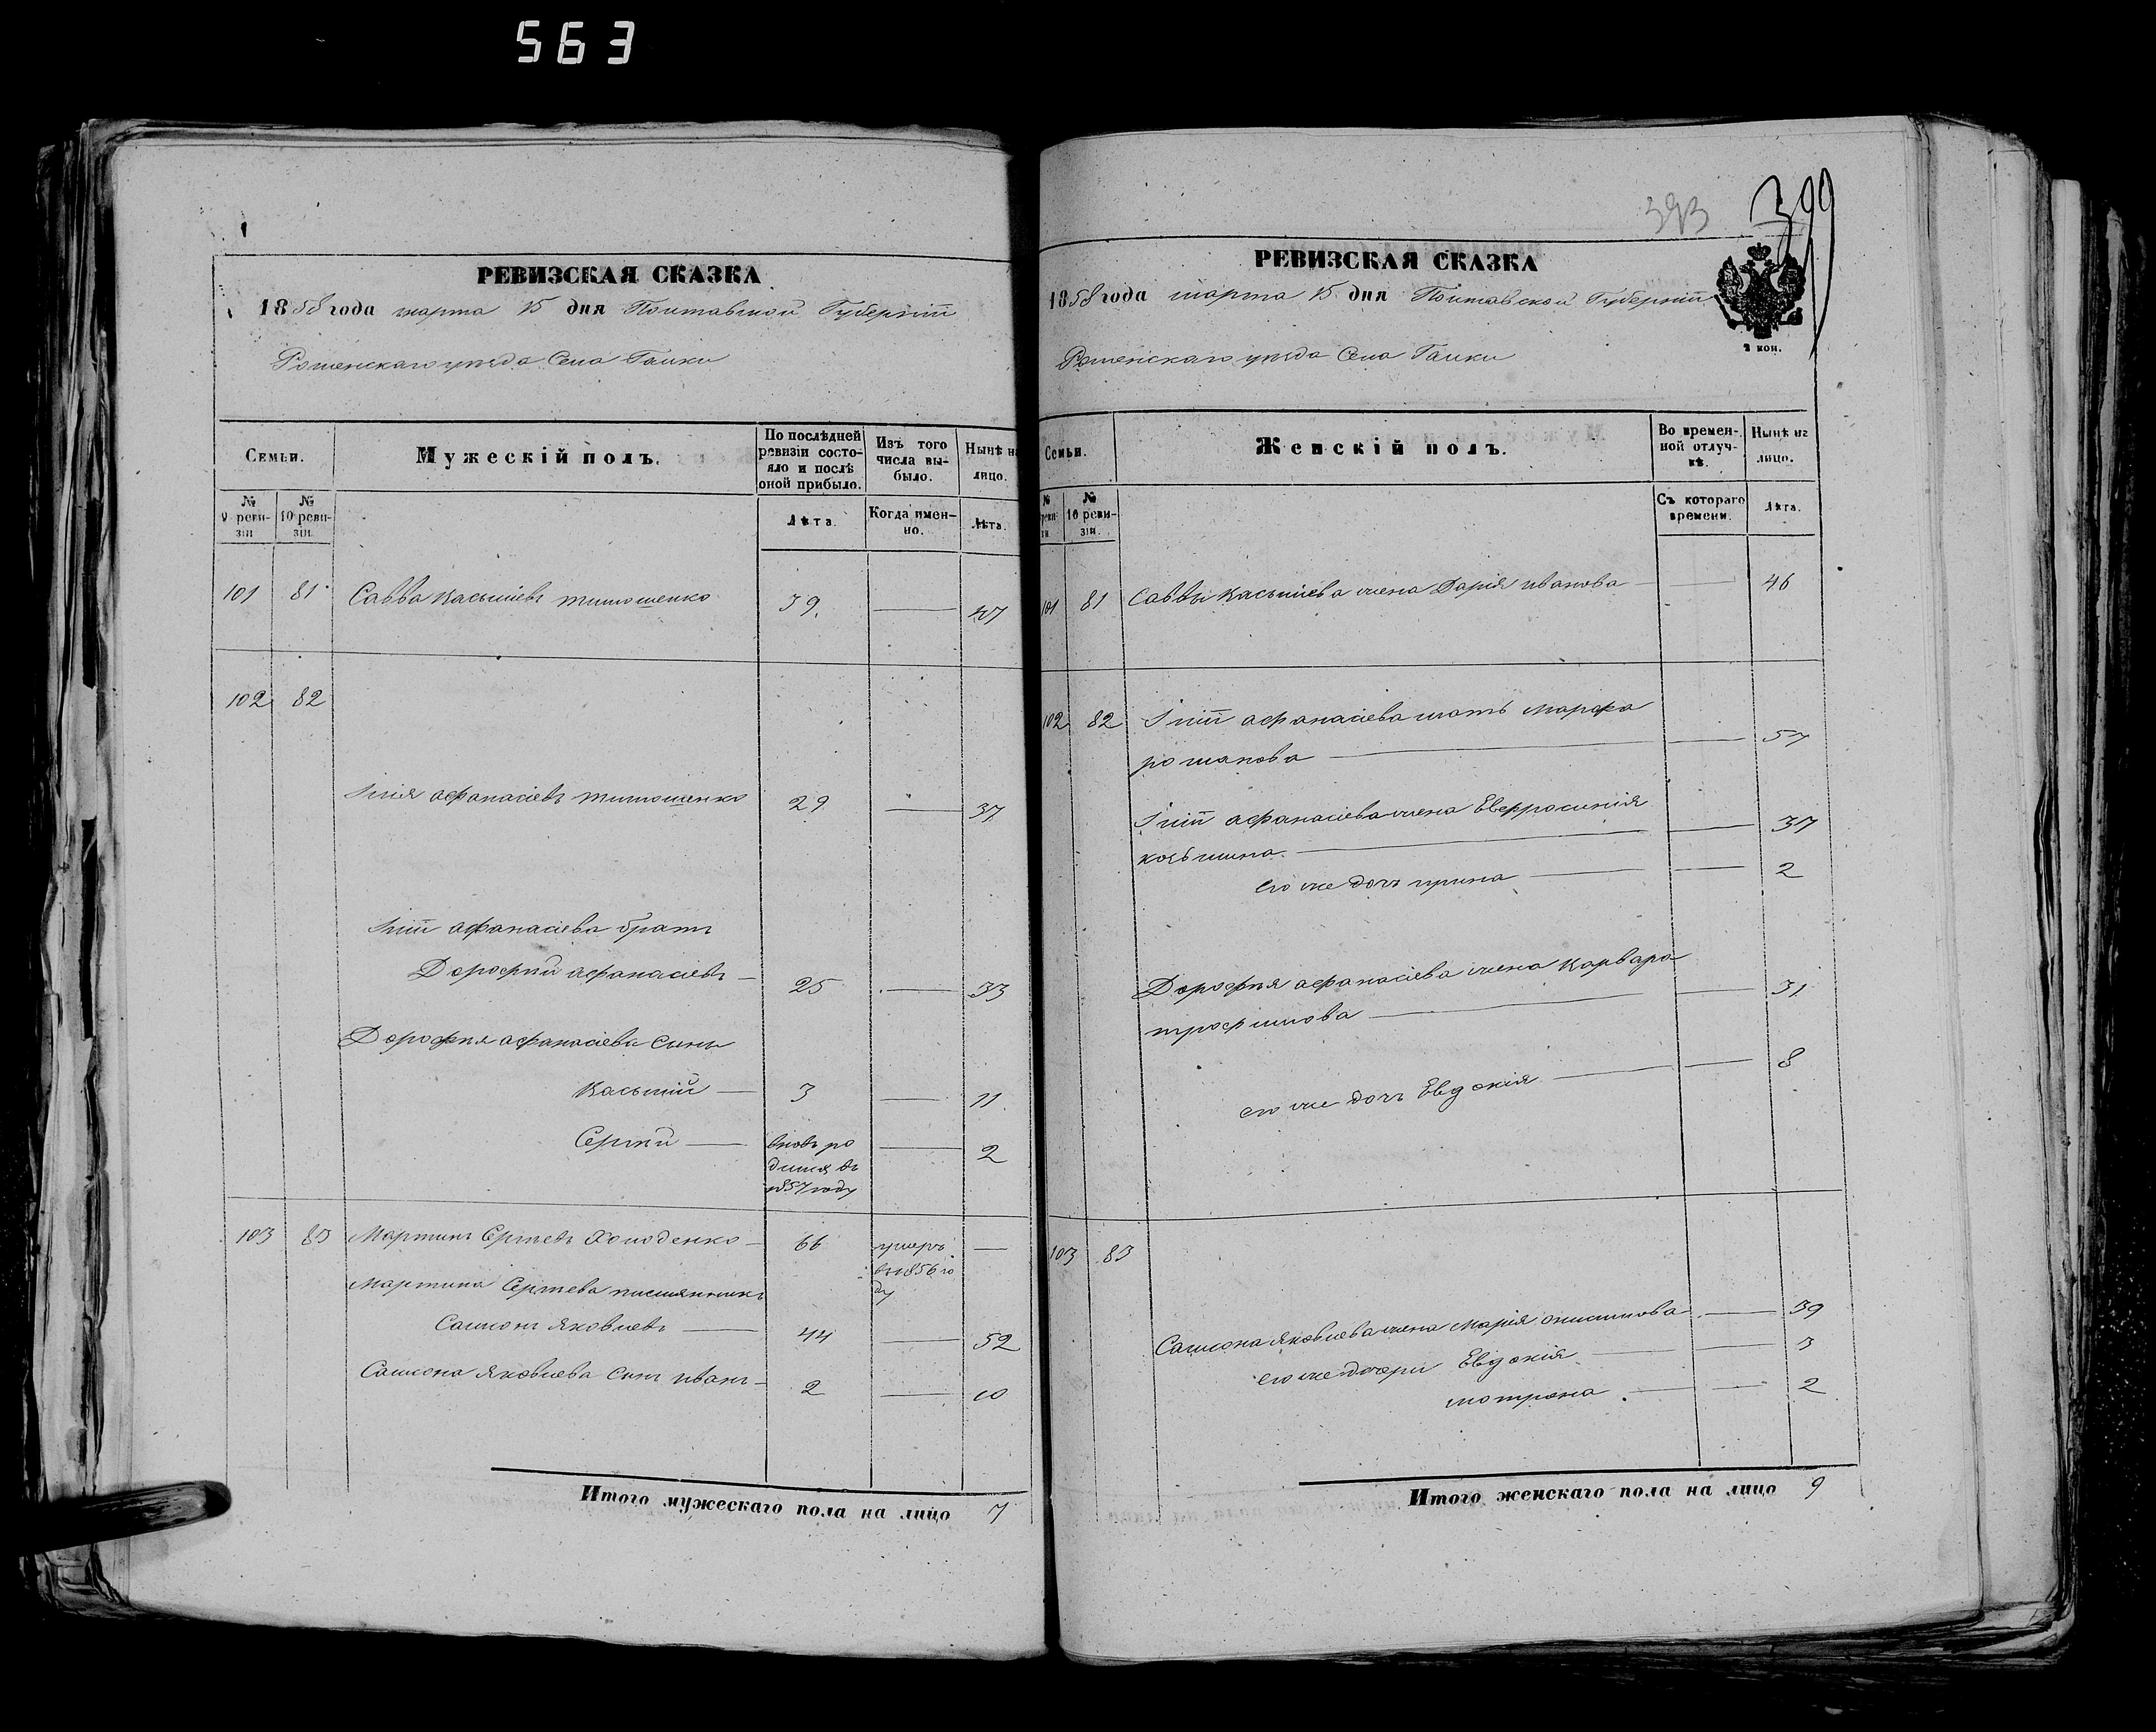 563
РЕВИЗСКАЯ СКАЗКА
1858 года марта 15 дня Полтавской Губерніи
Роменскаго уѣзда Села Галки
Семьи.
Мужескій полъ.
По послѣдней ревизіи состояло и послѣ оной прибыло.
Изъ того числа выбыло.
Нынѣ на лицо.
№ 9 ревизіи
№ 10 ревизіи.
Лѣта.
Когда именно.
Лѣта.
101 81 Савва Касьяновъ Тимошенко 39. 47
102 82
Илія Афанасіевъ Тимошенко 29 37
Иліи Афанасіева братъ
Дорофѣй Афанасіевъ 25 33
Дорофѣя Афанасіева сыны
3 11
Сергѣй вновь ро 2
дился въ
1857 году
103 83 Мартинъ Сергѣевъ Холоденко 66 умеръ
въ 1856 го
ду
Мартина Сергѣева племянникъ
Самсонъ Яковлевъ 44 52
Самсона Яковлева сынъ Иванъ 2 10
Итого мужескаго пола на лицо 7
393 399
РЕВИЗСКАЯ СКАЗКА
1858 года марта 15 дня Полтавской Губерніи
2 коп.
Роменскаго уѣзда Села Галки
Семьи.
Женскій полъ.
Во временной отлучкѣ.
Нынѣ на лицо.
№ 10 ревизіи.
Съ котораго времени.
Лѣта.
101 81 Саввы жена Дарія Иванова 46
102 82 Иліи Афанасіева мать Марфа
Романова 57
Иліи Афанасіева жена Евфросинія
Козьмина 37
его же дочь Ирина 2
Дорофѣя Афанасіева жена Варвара
Трофимова 31
его же дочь Евдокія 8
103 83
Самсона Яковлева жена Марія Онисимова 39
его же дочери Евдокія 3
Мотрона 2
Итого женскаго пола на лицо 9